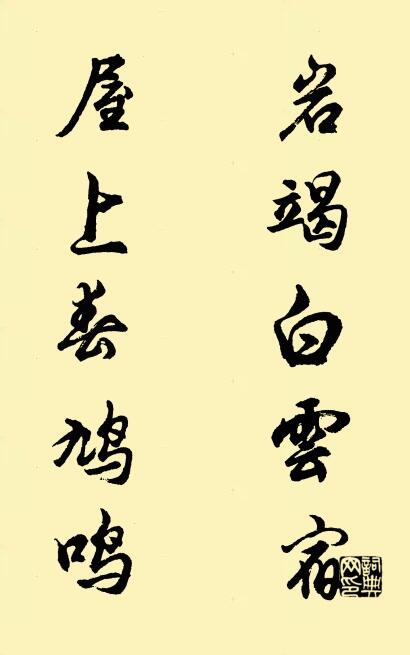 岩竭白雲宿
屋上春鳩鳴
詞典网印